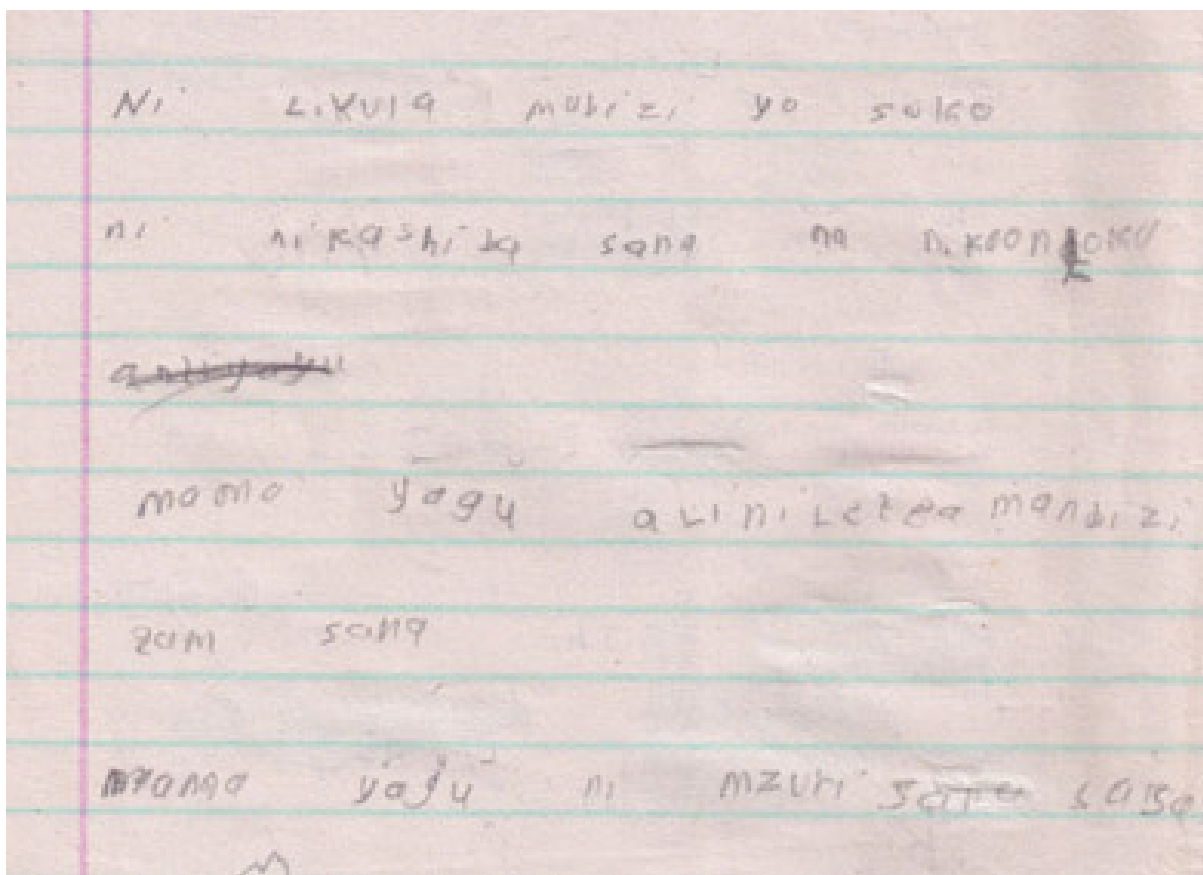 Ni Likula mubizi yo suko
ni nikashiba sana na nikaon
mama yagu aliniletea mandizi
zam sana
mama yagu ni mzuri sana saisa